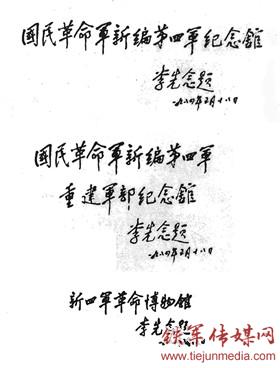 國民革命軍新編第四軍紀念館
李先念題
一九八四年五月十八日
國民革命軍新編第四軍
重建軍部紀念館
李先念題
一九八四年五月十八日
新四軍革命博物館
李先念題
铁军传媒网
www.tiejunmedia.com